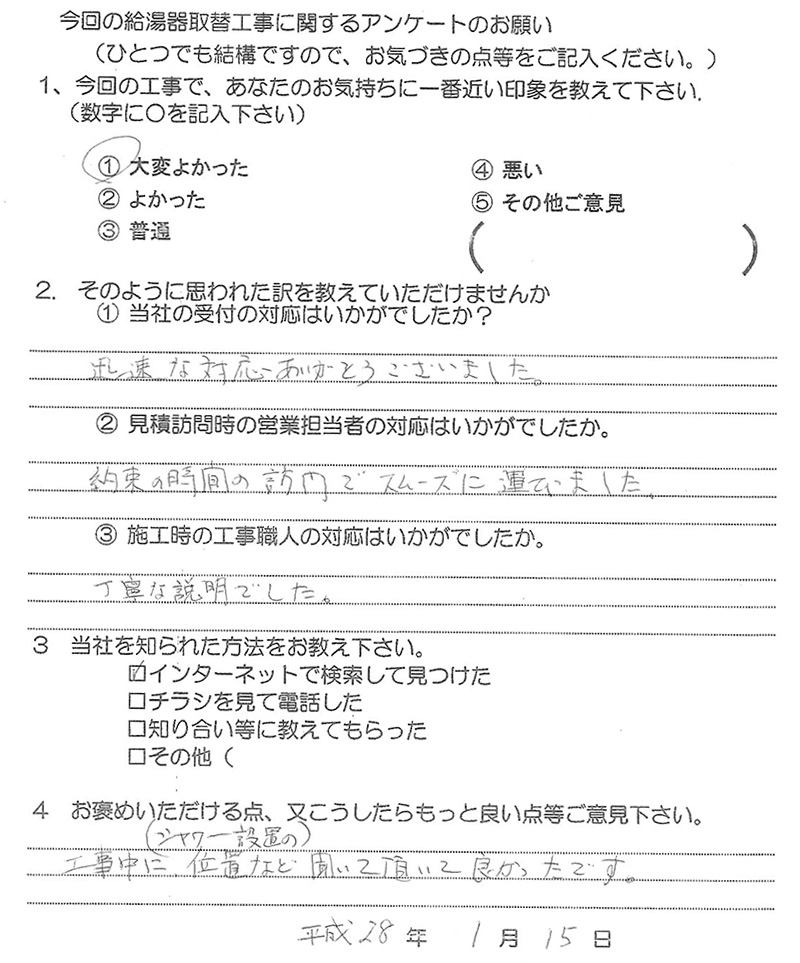 今回の給湯器取替工事に関するアンケートのお願い
(ひとつでも結構ですので、お気づきの点等をご記入ください。)
1、今回の工事で、あなたのお気持ちに一番近い印象を教えて下さい.
(数字に〇を記入下さい)
① 大変よかった ④ 悪い
② よかった ⑤ その他ご意見
③ 普通 ( )
2. そのように思われた訳を教えていただけませんか
① 当社の受付の対応はいかがでしたか?
迅速な対応ありがとうございました。
② 見積訪問時の営業担当者の対応はいかがでしたか。
約束の時間の訪問でスムーズに運びました。
③ 施工時の工事職人の対応はいかがでしたか。
丁寧な説明でした。
3 当社を知られた方法をお教え下さい。
☑インターネットで検索して見つけた
□チラシを見て電話した
□知り合い等に教えてもらった
□その他 (
4 お褒めいただける点、又こうしたらもっと良い点等ご意見下さい。
(シャワー設置の)
工事中に、位置など聞いて頂いて良かったです。
平成28年 1月 15日